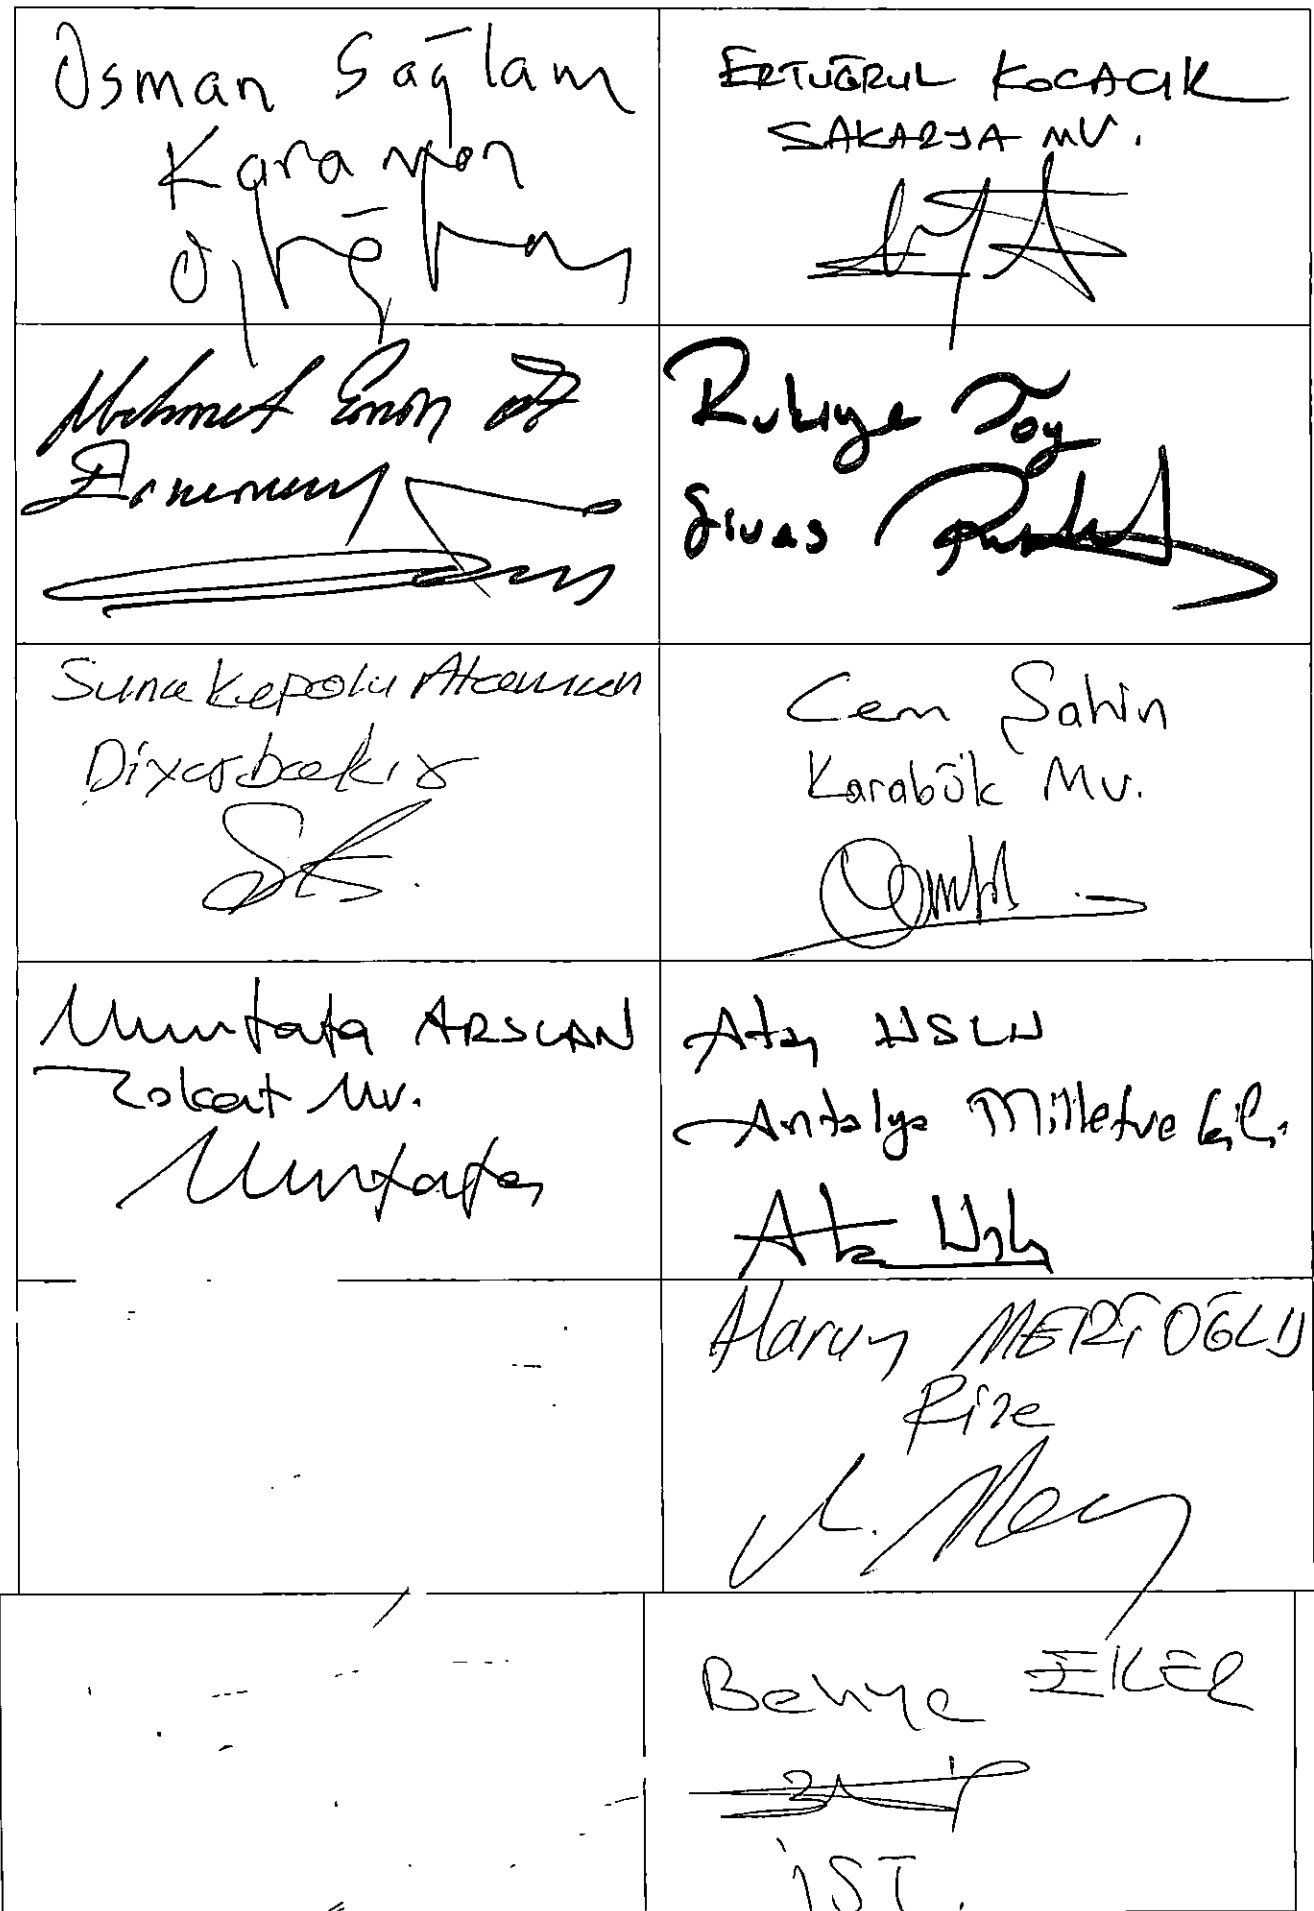 Osman Sağlam
Karaman
ERTUĞRUL KOCACIK
SAKARYA MV.
Mehmet Emin Öz
Erzurum
Rukiye Toy
Sivas
Suna Kepolu Ataman
Diyarbakır
Cem Şahin
Karabük Mv.
Mustafa ARSLAN
Tokat Mv.
Atay USLU
Antalya Milletvekili
Harun MERTOĞLU
Rize
Behiye EKER
İST.